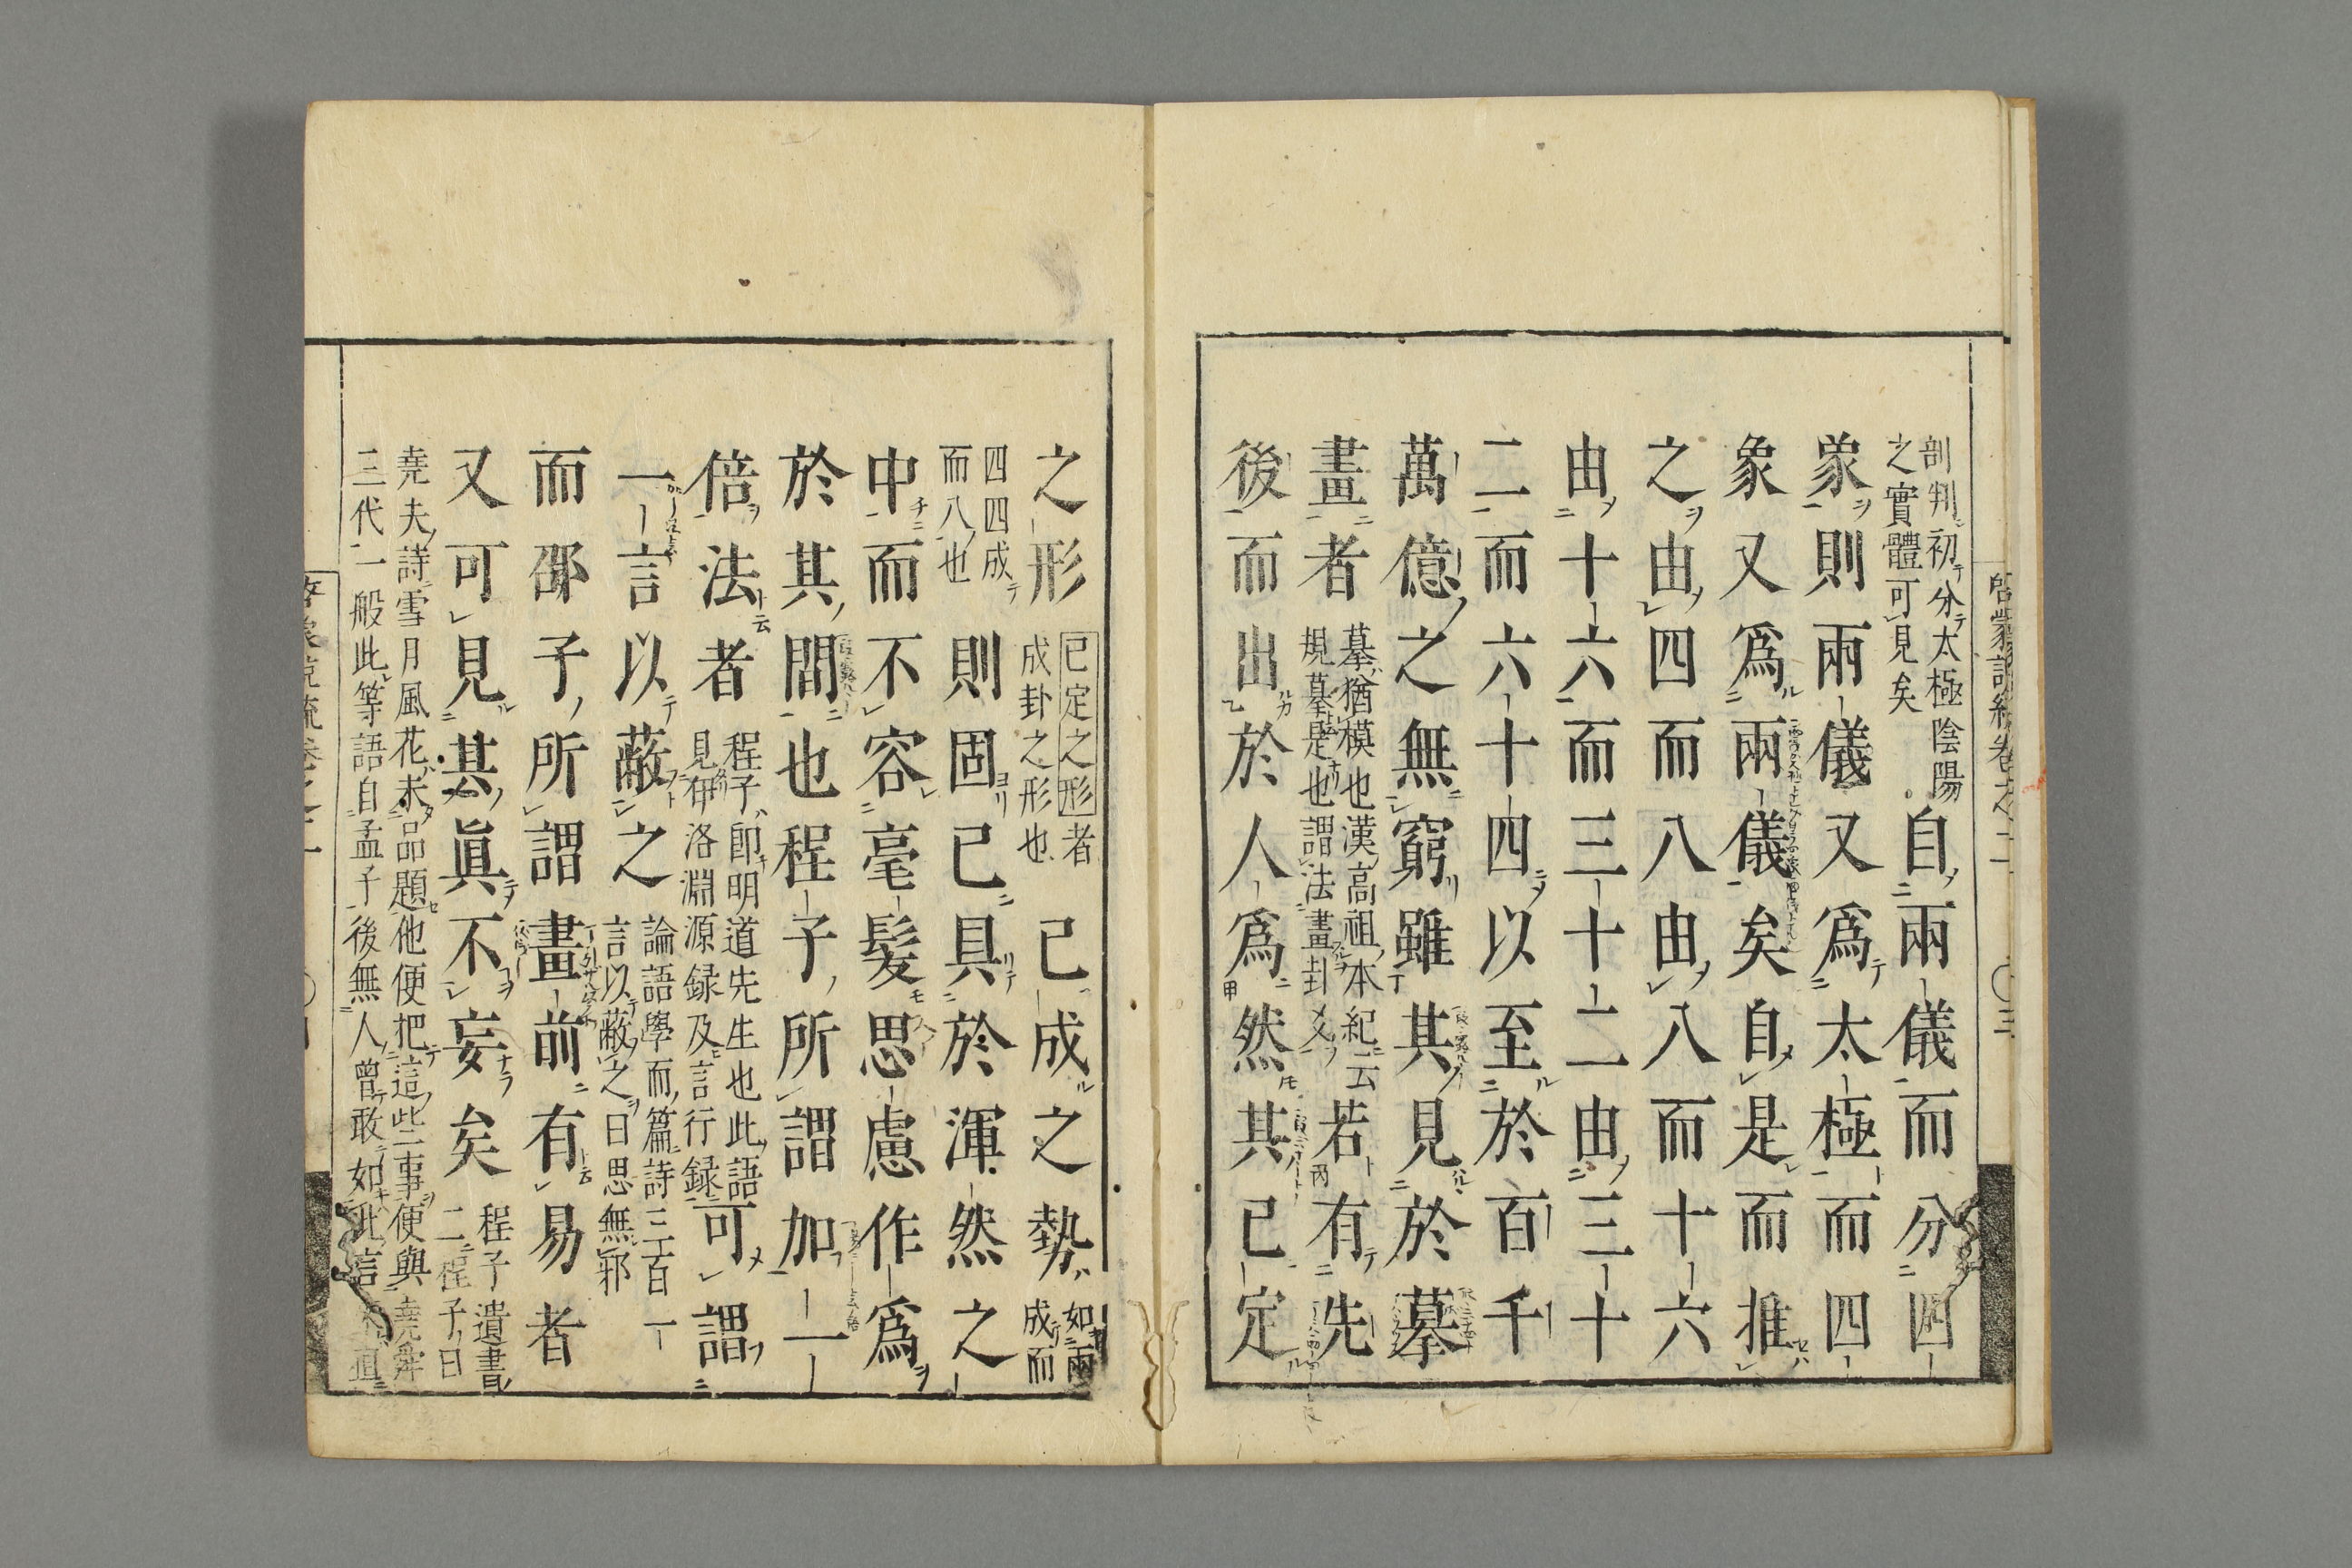 剖判初分太極陰陽
之實體可見矣
自兩儀而分四
象則兩儀又爲太極而四
象又爲兩儀矣自是而推
之由四而八由八而十六
由十六而三十二由三十
二而六十四以至於百千
萬億之無窮雖其見於摹
畫者
摹猶模也漢高祖本紀云
規摹是也謂法畫卦爻
若有先
後而出於人爲然其已定
之形
已定之形者
成卦之形也
已成之勢
如兩
成而
四四成
而八也
則固已具於渾然之
中而不容毫髮思慮作爲
於其間也程子所謂加一
倍法者
程子即明道先生也此語
見伊洛淵源録及言行録
可謂
一言以蔽之
論語學而篇詩三百一
言以蔽之曰思無邪
而邵子所謂畫前有易者
又可見其眞不妄矣
程子遺書
二程子曰
堯夫詩雪月風花未品題他便把這些事便與堯舜
三代一般此等語自孟子後無人曾敢如此言